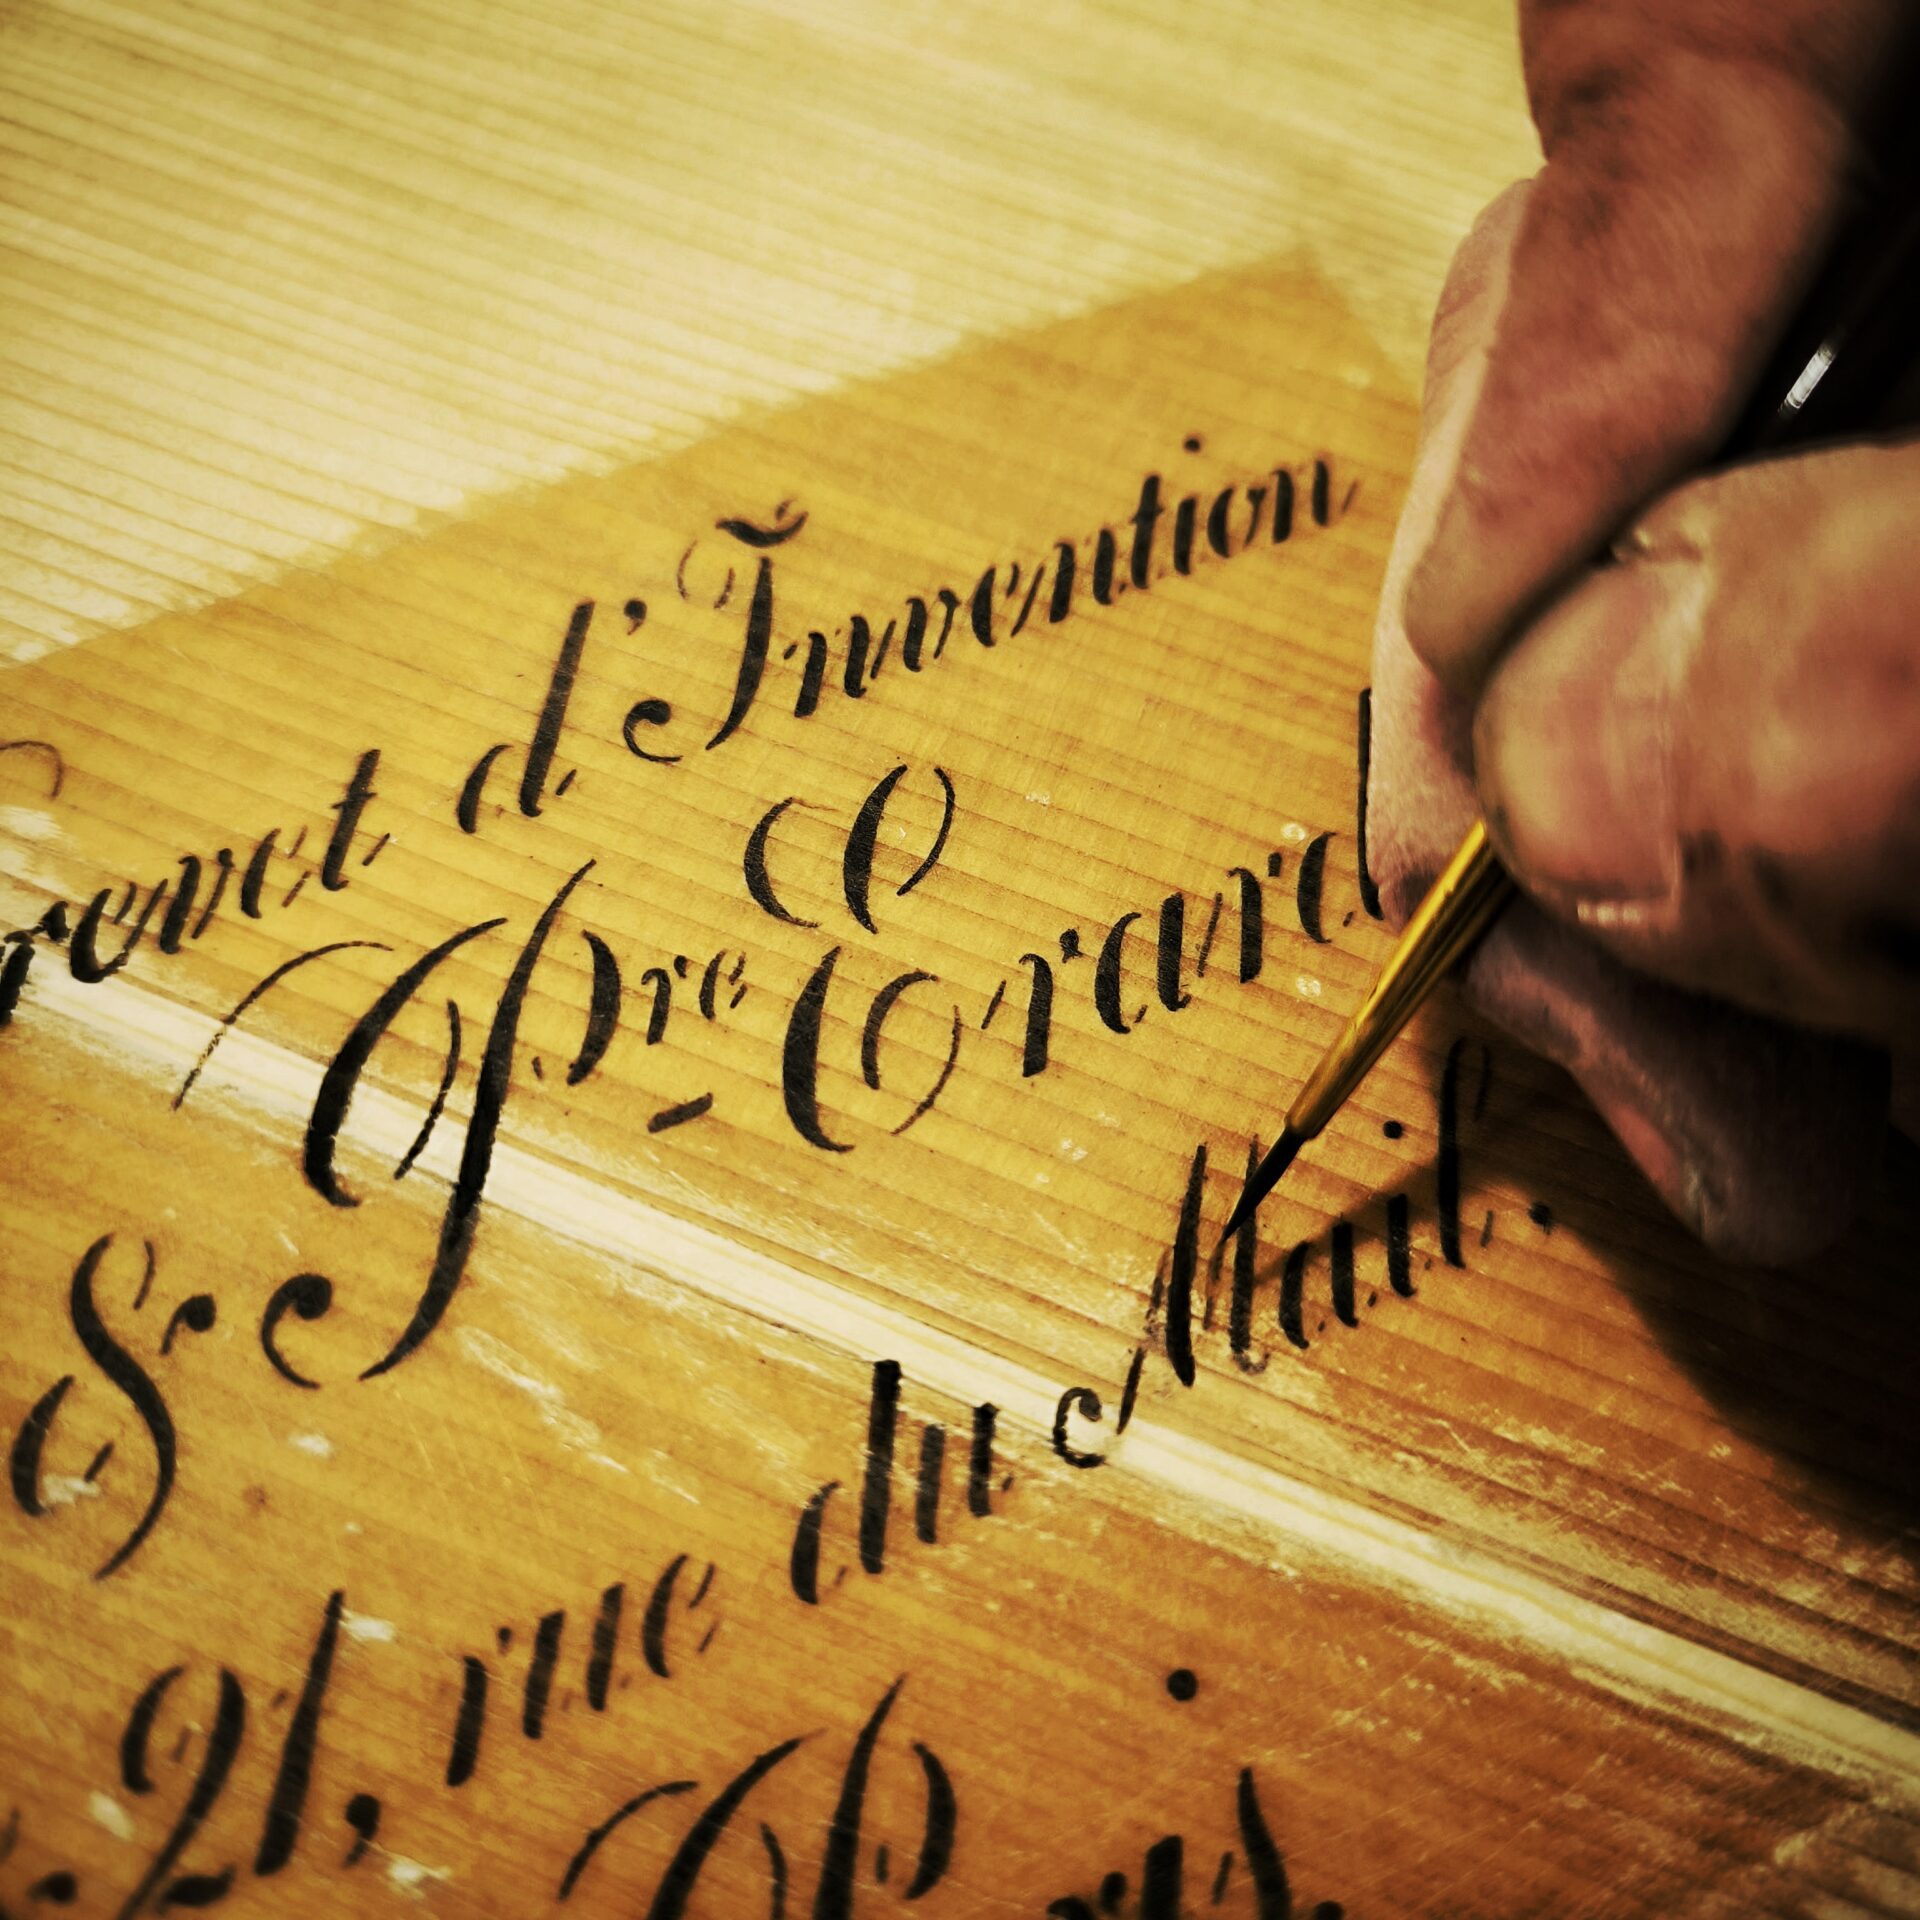 revet d'Invention
Pre Erard
21, rue du Mail.
Paris